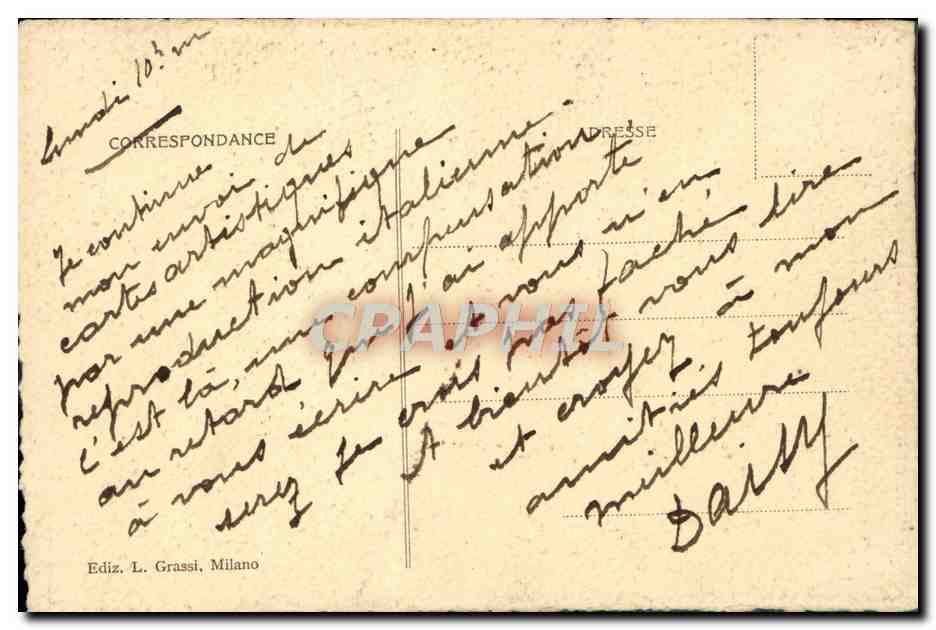 Lundi 10h m
CORRESPONDANCE
ADRESSE
Je continue
mon envoi de
cartes artistiques
par une magnifique
reproduction italienne.
C'est là, une compensation
au retard que j'ai apporté
à vous écrire et vous n'en
serez je crois pas faché
A bientôt vous lire
et croyez à mon
amitiés toujours
meilleure
Daisy
CPAPHIL
Ediz. L. Grassi, Milano